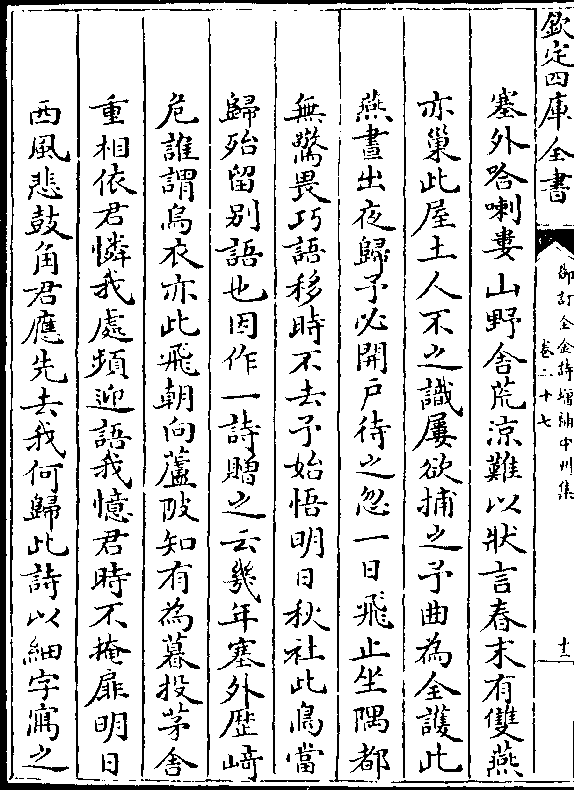 欽定四庫全書
御訂全金詩增補中州集
卷二十七
十二
塞外唂喇婁山野舍荒涼難以狀言春末有雙燕
亦巢此屋土人不之識屢欲捕之予曲為全護此
燕晝出夜歸予必開戶待之忽一日飛止坐隅都
無驚畏巧語移時不去予始悟明日秋社此鳥當
歸殆留別語也因作一詩贈之云幾年塞外歷﨑
危誰謂烏衣亦此飛朝向蘆陂知有為暮投茅舍
重相依君憐我處頻迎語我憶君時不掩扉明日
西風悲鼓角君應先去我何歸此詩以細字寫之